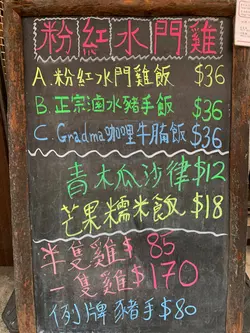 粉紅水門雞
A.粉紅水門雞飯 $36
B.正宗滷水豬手飯 $36
C.Gradma咖喱牛腩飯 $36
青木瓜沙律 $12
芒果糯米飯 $18
半隻雞 $ 85
一隻雞 $170
例牌豬手 $80